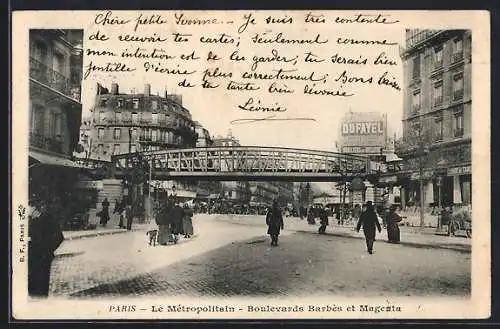 Chère petite Yvonne – Je suis très contente
de recevoir tes cartes; seulement comme
mon intention est de les garder, tu serais bien
gentille d'écrire plus correctement; Bons baisers
de ta tante bien dévouée
Léonie
DUFAYEL
B. F. PARIS
PARIS – Le Métropolitain - Boulevards Barbès et Magenta